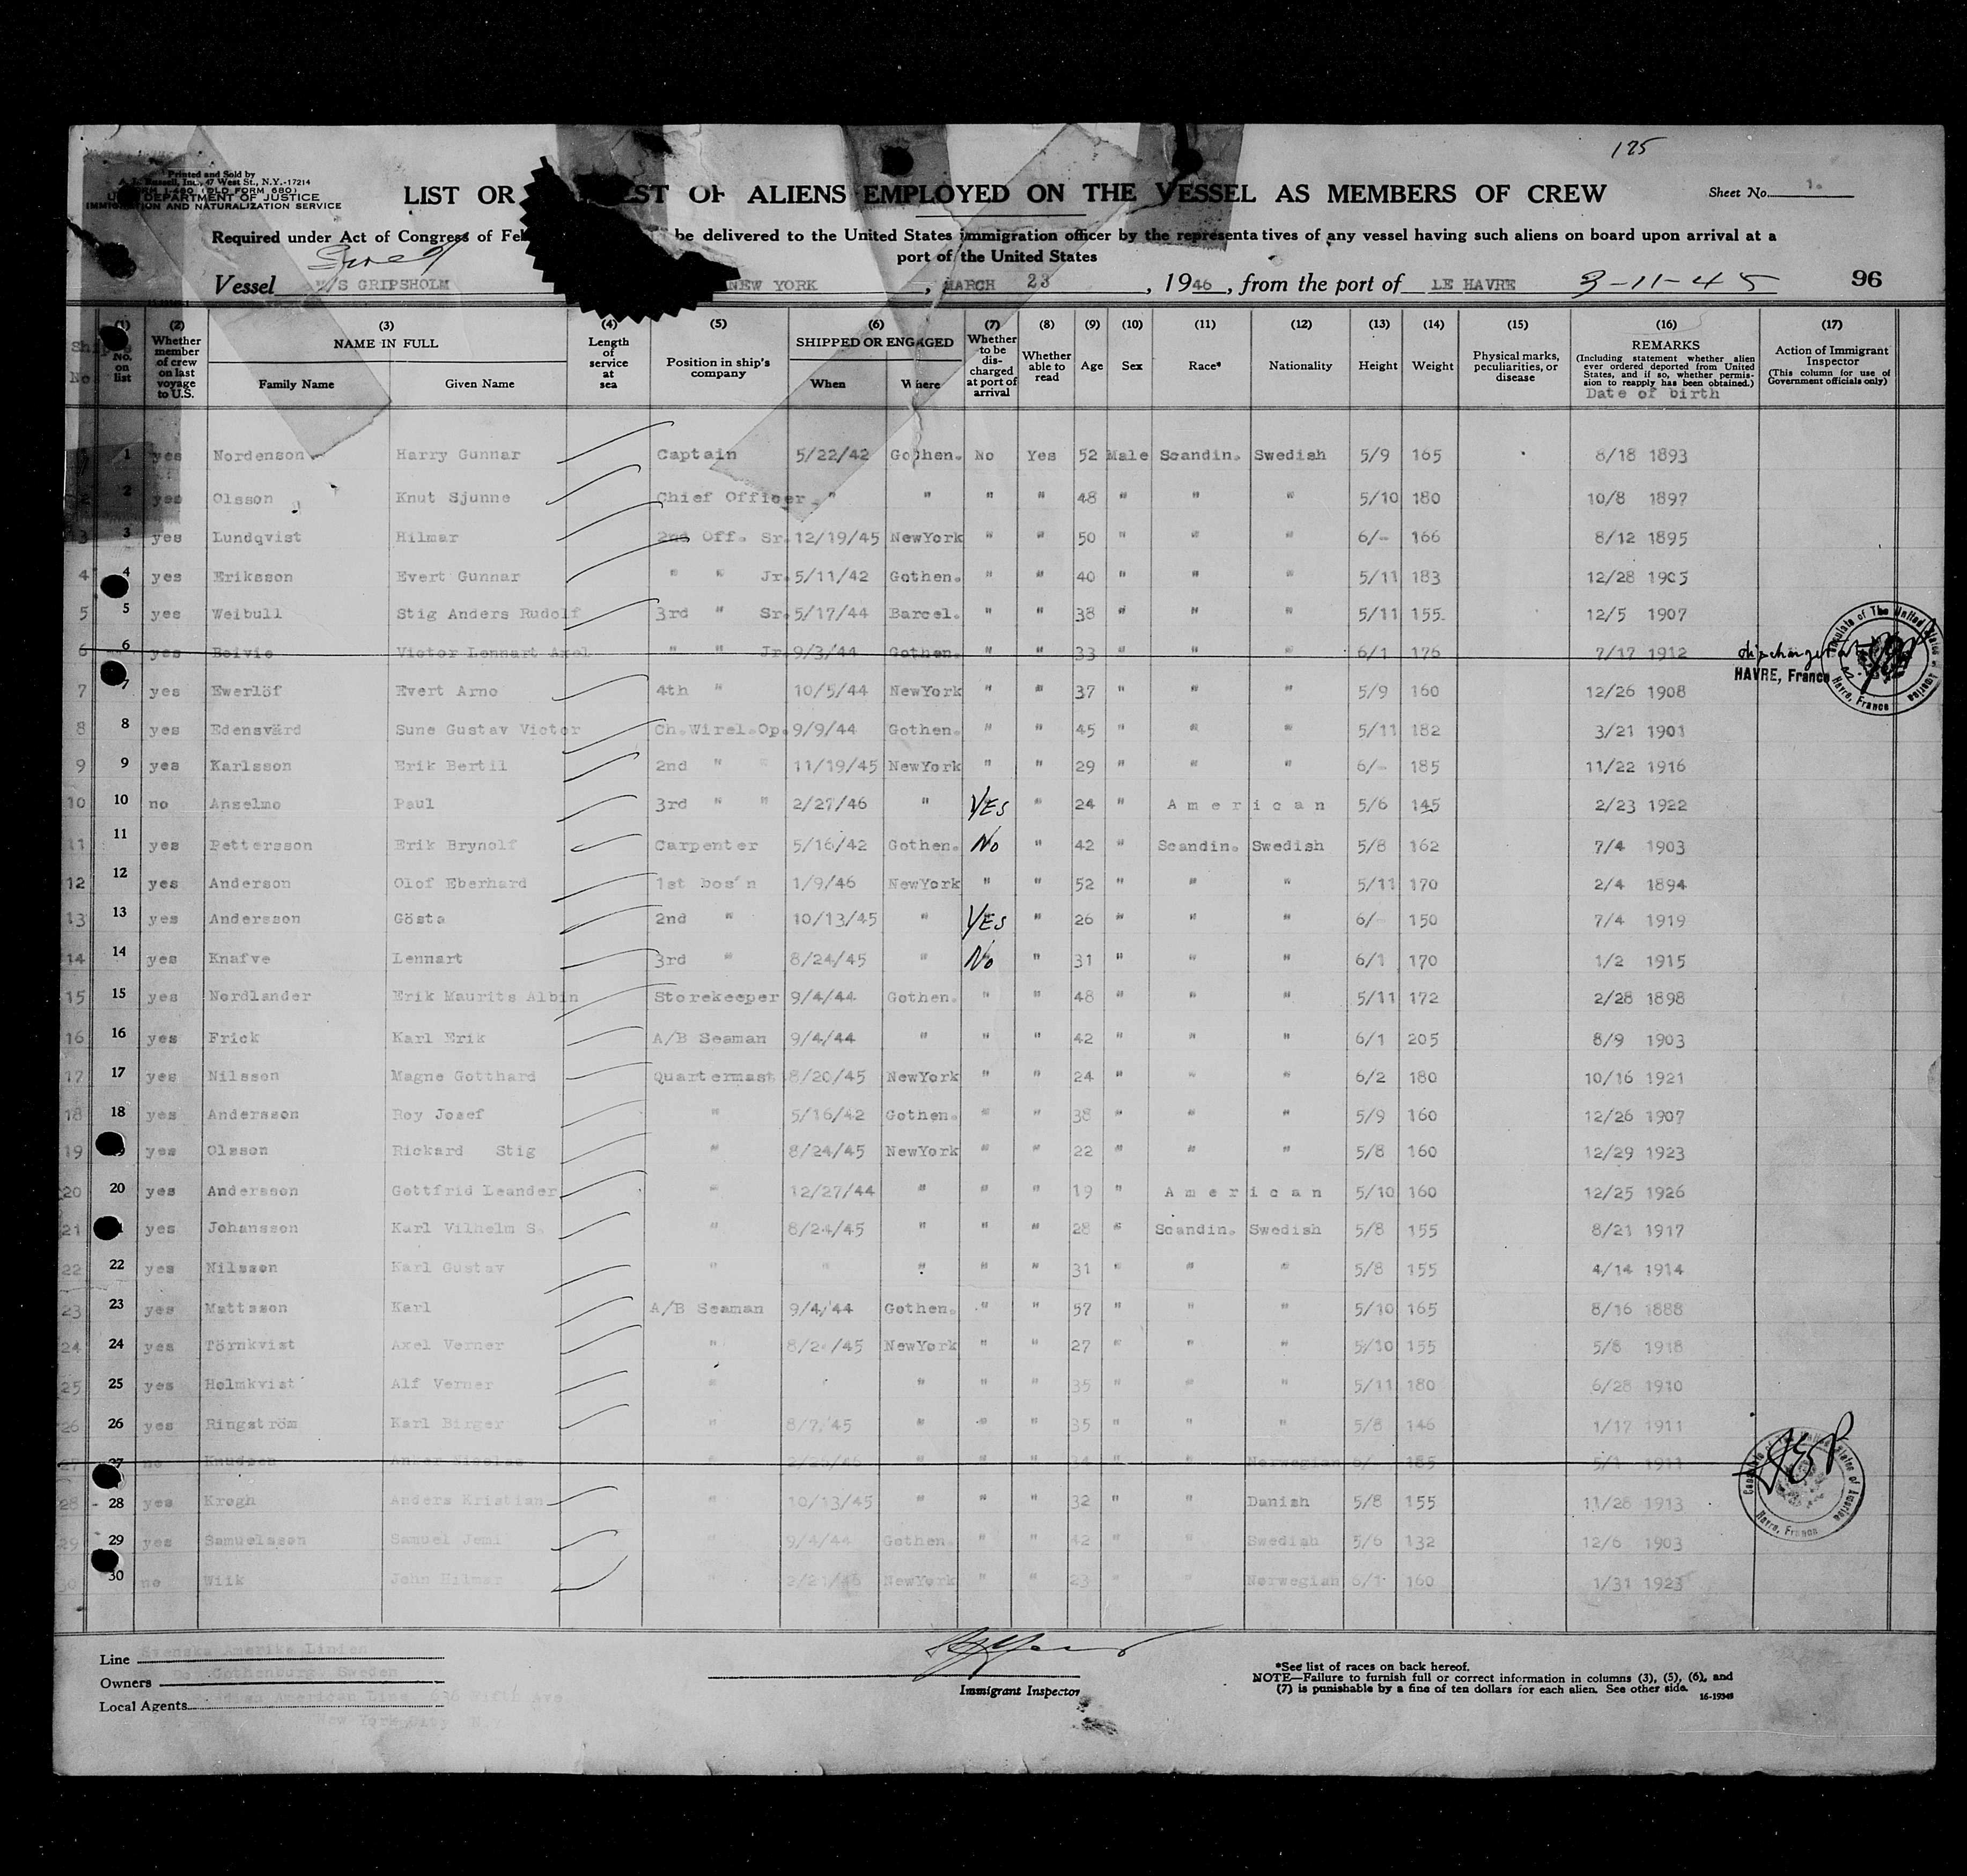 175
Printed and Sold by
A. L. Russell, Inc., 47 West St., N.Y.-17214
FORM I-480 (OLD FORM 680)
DEPARTMENT OF JUSTICE
IMMIGRATION AND NATURALIZATION SERVICE
LIST OR EST OF ALIENS EMPLOYED ON THE VESSEL AS MEMBERS OF CREW
Sheet No. 1.
Required under Act of Congress of Feb be delivered to the United States immigration officer by the representatives of any vessel having such aliens on board upon arrival at a
port of the United States
Swed
Vessel M/S GRIPSHOLM NEW YORK , MARCH 23 , 1946 , from the port of LE HAVRE 3-11-45 96
(1) (2) (3) (4) (5) (6) (7) (8) (9) (10) (11) (12) (13) (14) (15) (16) (17)
Ship's No. No. on list Whether member of crew on last voyage to U.S. NAME IN FULL Family Name Given Name Length of service at sea Position in ship's company SHIPPED OR ENGAGED When Where Whether to be discharged at port of arrival Whether able to read Age Sex Race* Nationality Height Weight Physical marks, peculiarities, or disease REMARKS (Including statement whether alien ever ordered deported from United States, and if so, whether permission to reapply has been obtained.) Date of birth Action of Immigrant Inspector (This column for use of Government officials only)
1 yes Nordenson Harry Gunnar Captain 5/22/42 Gothen. No Yes 52 Male Scandin. Swedish 5/9 165 8/18 1893
2 2 yes Olsson Knut Sjunne Chief Officer " " " " 48 " " " 5/10 180 10/8 1897
3 3 yes Lundqvist Hilmar 2nd Off. Sr. 12/19/45 NewYork " " 50 " " " 6/- 166 8/12 1895
4 4 yes Eriksson Evert Gunnar " " Jr. 5/11/42 Gothen. " " 40 " " " 5/11 183 12/28 1905
5 5 yes Weibull Stig Anders Rudolf 3rd " Sr. 5/17/44 Barcel. " " 38 " " " 5/11 155. 12/5 1907
6 6 yes Belvie Victor Lennart Axel " " Jr. 9/3/44 Gothen. " " 33 " " " 6/1 176 7/17 1912 discharged at
HAVRE, France
7 7 yes Ewerlöf Evert Arno 4th " 10/5/44 NewYork " " 37 " " " 5/9 160 12/26 1908
8 8 yes Edensvärd Sune Gustav Victor Ch.Wirel.Op. 9/9/44 Gothen. " " 45 " " " 5/11 182 3/21 1901
9 9 yes Karlsson Erik Bertil 2nd " " 11/19/45 NewYork " " 29 " " " 6/- 185 11/22 1916
10 10 no Anselmo Paul 3rd " " 2/27/46 " YES " 24 " American 5/6 145 2/23 1922
11 11 yes Pettersson Erik Brynolf Carpenter 5/16/42 Gothen. No " 42 " Scandin. Swedish 5/8 162 7/4 1903
12 12 yes Anderson Olof Eberhard 1st bos'n 1/9/46 NewYork " " 52 " " " 5/11 170 2/4 1894
13 13 yes Andersson Gösta 2nd " 10/13/45 " YES " 26 " " " 6/- 150 7/4 1919
14 14 yes Knafve Lennart 3rd " 8/24/45 " No " 31 " " " 6/1 170 1/2 1915
15 15 yes Nordlander Erik Maurits Albin Storekeeper 9/4/44 Gothen. " " 48 " " " 5/11 172 2/28 1898
16 16 yes Frick Karl Erik A/B Seaman 9/4/44 " " " 42 " " " 6/1 205 8/9 1903
17 17 yes Nilsson Magne Gotthard Quartermast 8/20/45 NewYork " " 24 " " " 6/2 180 10/16 1921
18 18 yes Andersson Roy Josef " 5/16/42 Gothen. " " 38 " " " 5/9 160 12/26 1907
19 yes Olsson Rickard Stig " 8/24/45 NewYork " " 22 " " " 5/8 160 12/29 1923
20 20 yes Andersson Gottfrid Leander " 12/27/44 " " " 19 " American 5/10 160 12/25 1926
21 yes Johansson Karl Vilhelm S. " 8/24/45 " " " 28 " Scandin. Swedish 5/8 155 8/21 1917
22 22 yes Nilsson Karl Gustav " " " " " 31 " " " 5/8 155 4/14 1914
23 23 yes Mattsson Karl A/B Seaman 9/4/44 Gothen. " " 57 " " " 5/10 165 8/16 1888
24 24 yes Törnkvist Axel Verner " 8/2 /45 NewYork " " 27 " " " 5/10 155 5/8 1918
25 25 yes Holmkvist Alf Verner " " " " " 35 " " " 5/11 180 6/28 1910
26 26 yes Ringström Karl Birger " 8/7/45 " " " 35 " " " 5/8 146 1/17 1911
27 27 no Knudsen " " " " " " Norwegian 6/ 185 5/1 1911
28 - 28 yes Krogh Anders Kristian " 10/13/45 " " " 32 " " Danish 5/8 155 11/28 1913
29 29 yes Samuelsson Samuel Jemi " 9/4/44 Gothen. " " 42 " " Swedish 5/6 132 12/6 1903
30 30 no Wiik John Hilmar " 2/21/46 NewYork " " 23 " " Norwegian 6/1 160 1/31 1923
Consulate of The United States of America
Havre, France
Consulate of The United States of America
Havre, France
Line Svenska Amerika Linien
Owners Do Gothenburg, Sweden
Local Agents Swedish American Line 636 Fifth Ave
New York City N.Y.
Immigrant Inspector
*See list of races on back hereof.
NOTE—Failure to furnish full or correct information in columns (3), (5), (6), and
(7) is punishable by a fine of ten dollars for each alien. See other side. 16-19348